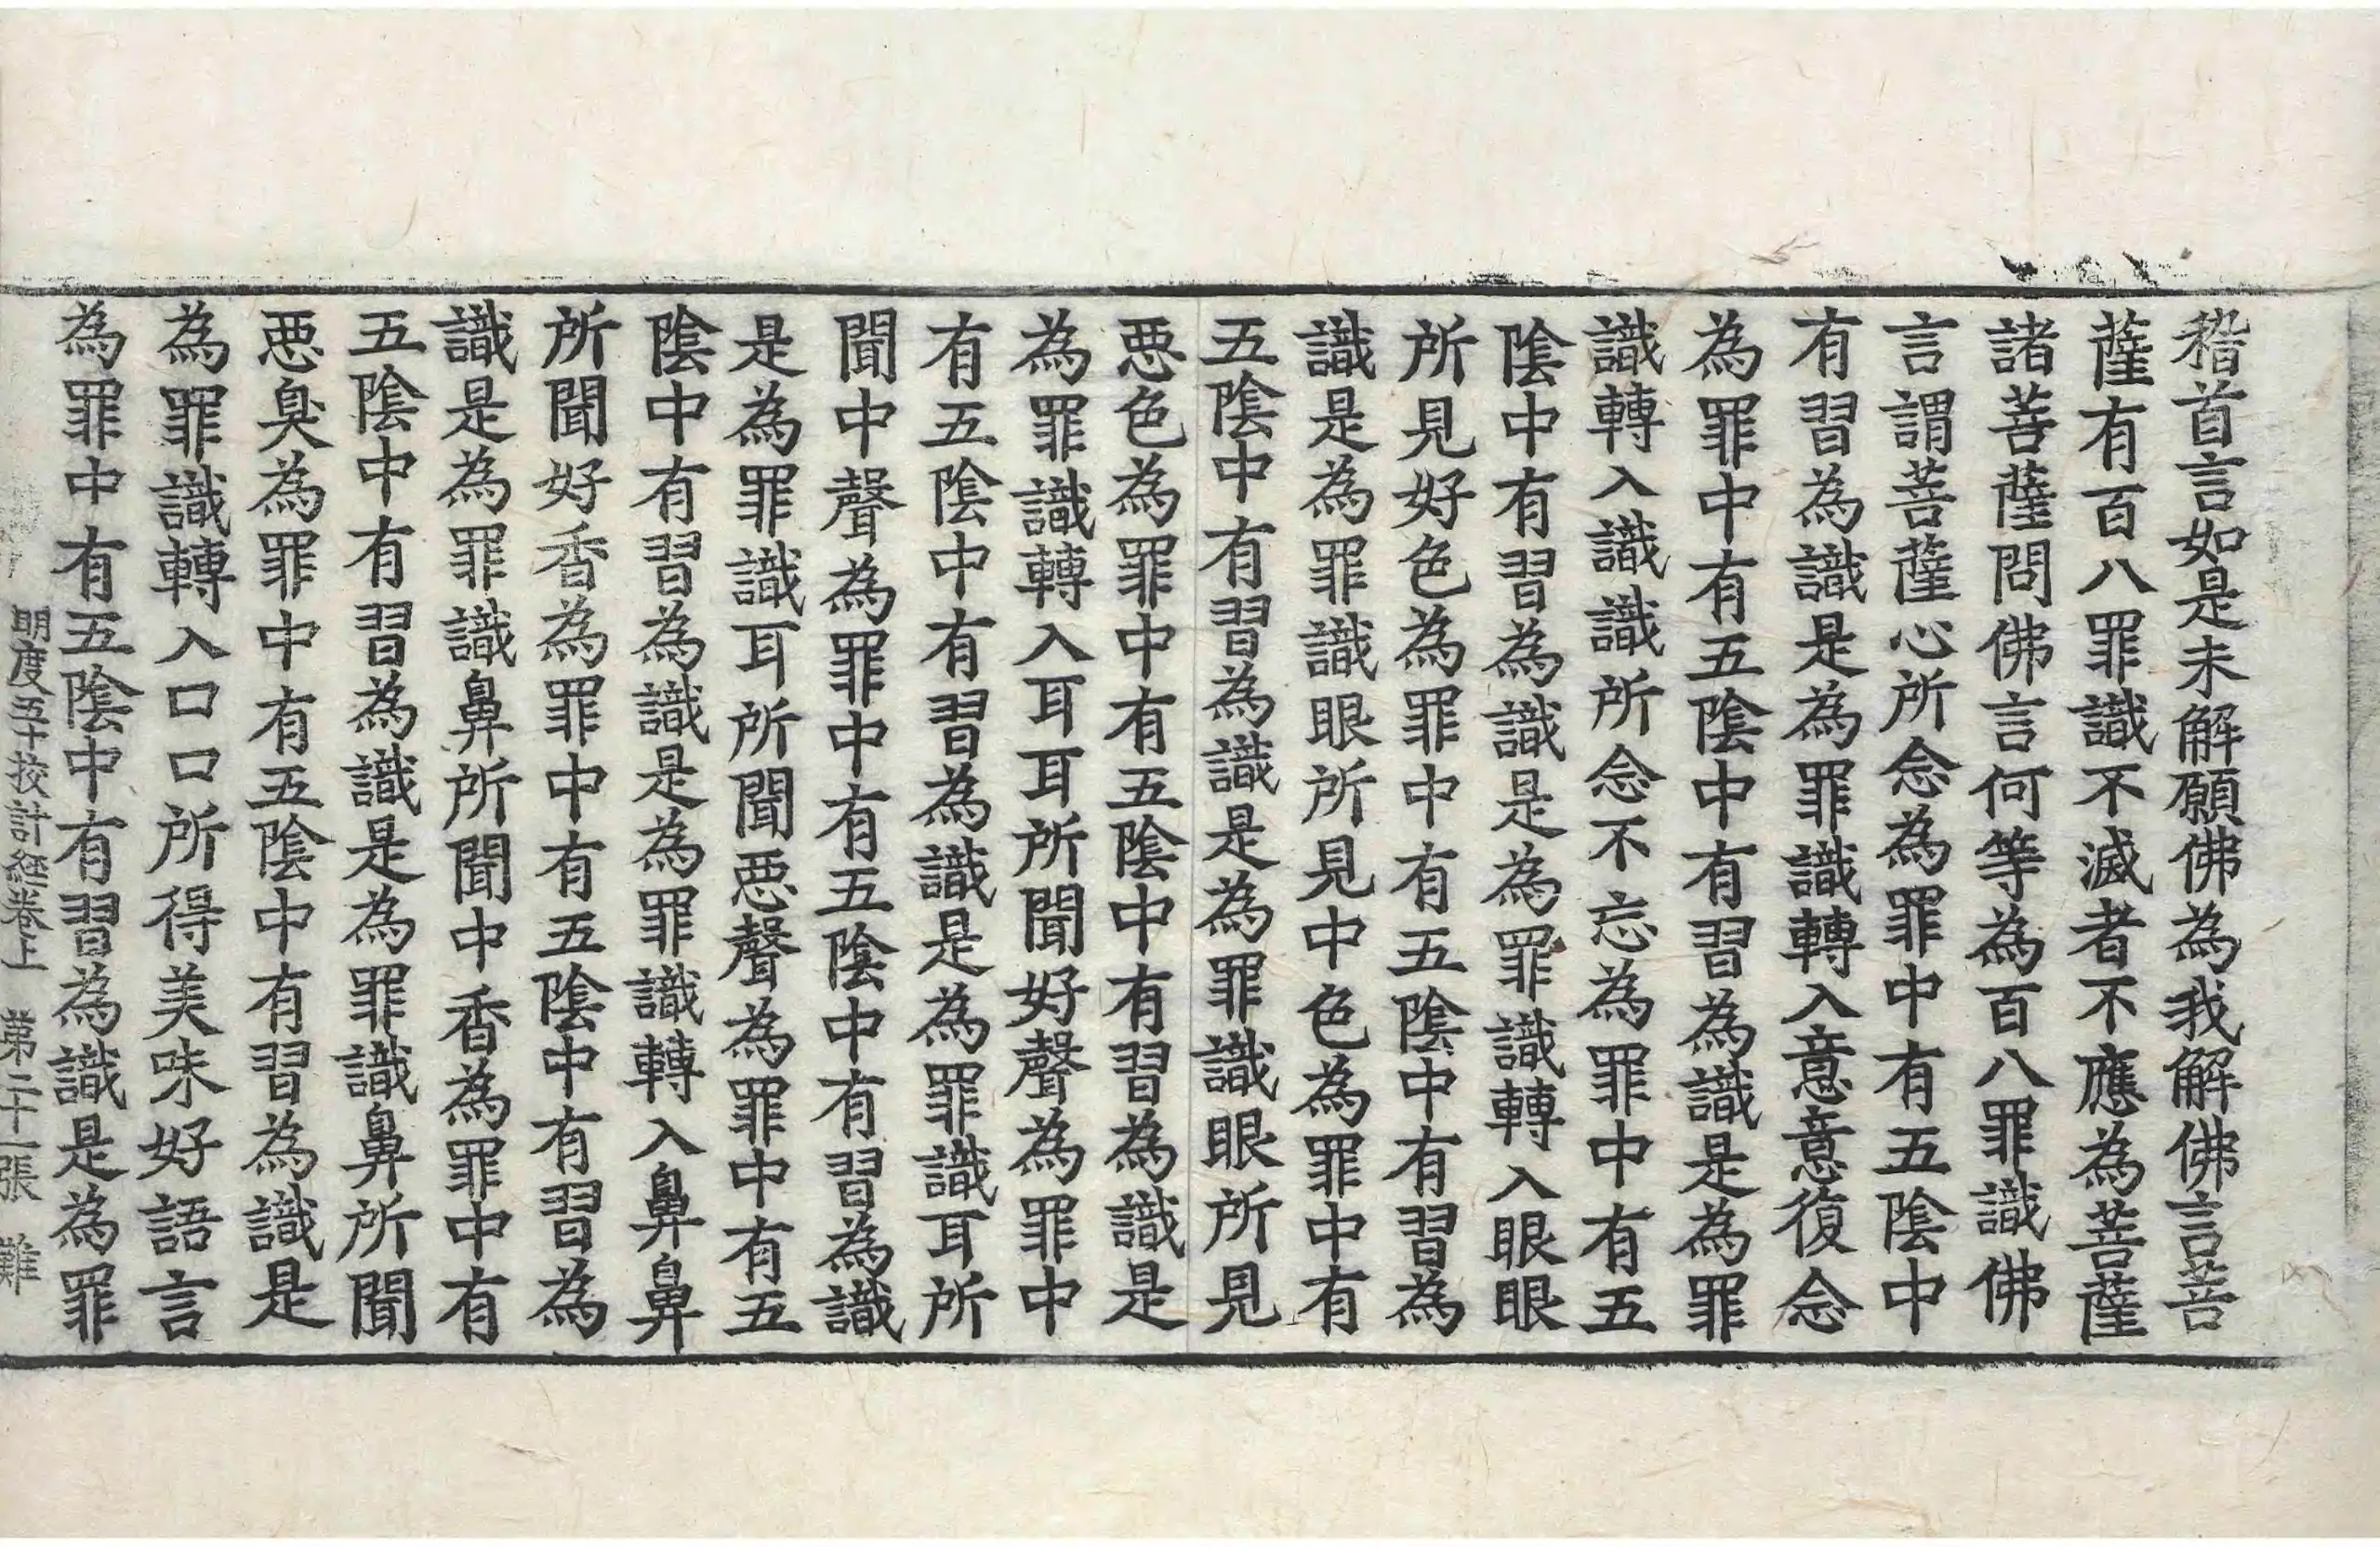 稽首言如是未解願佛為我解佛言菩
薩有百八罪識不滅者不應為菩薩
諸菩薩問佛言何等為百八罪識佛
言謂菩薩心所念為罪中有五陰中
有習為識是為罪識轉入意意復念
為罪中有五陰中有習為識是為罪
識轉入識識所念不忘為罪中有五
陰中有習為識是為罪識轉入眼眼
所見好色為罪中有五陰中有習為
識是為罪識眼所見中色為罪中有
五陰中有習為識是為罪識眼所見
悪色為罪中有五陰中有習為識是
為罪識轉入耳耳所聞好聲為罪中
有五陰中有習為識是為罪識耳所
聞中聲為罪中有五陰中有習為識
是為罪識耳所聞悪聲為罪中有五
陰中有習為識是為罪識轉入鼻鼻
所聞好香為罪中有五陰中有習為
識是為罪識鼻所聞中香為罪中有
五陰中有習為識是為罪識鼻所聞
悪臭為罪中有五陰中有習為識是
為罪識轉入口口所得美味好語言
為罪中有五陰中有習為識是為罪
明度五十挍計経卷上 第二十一張 難